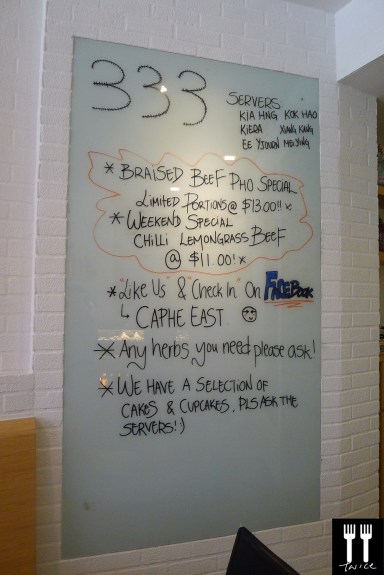 333
SERVERS
KIA HNG KOK HAO
KIERA XIANG KANG
EE YSOURN MEI YING
* BRAISED BEEF PHO SPECIAL
LIMITED PORTIONS @ $13.00!! *
* WEEKEND SPECIAL
CHILLI LEMONGRASS BEEF
@ $11.00! *
* "LIKE US & CHECK IN" ON FACEBOOK
↳ CAPHE EAST.
* Any herbs you need please ask!
* WE HAVE A SELECTION OF
CAKES & CUPCAKES. PLS ASK THE
SERVERS! :)
twice